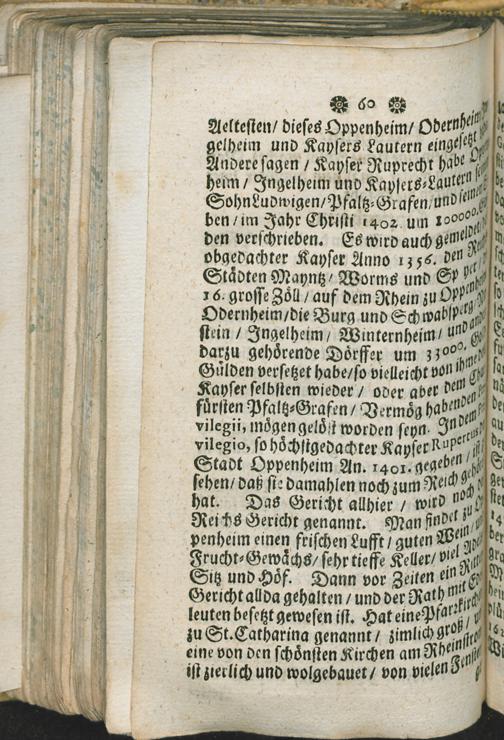 60
Aeltesten/ dieses Oppenheim/ Odernheim/
gelheim und Kaysers Lautern eingesetzt
Andere sagen / Kayser Ruprecht habe
heim/ Ingelheim und Kaysers-Lautern
Sohn Ludwigen/ Pfaltz-Grafen/ und seinen
ben/ im Jahr Christi 1402. um 100000.
den verschrieben. Es wird auch gemeldet
obgedachter Kayser Anno 1356. den
Städten Mayntz/ Worms und
16. grosse Zöll/ auf dem Rhein zu Oppenheim
Odernheim/ die Burg und Schwabsperg/
stein / Ingelheim/ Winternheim/ und
darzu gehörende Dörffer um 33000.
Gülden versetzet habe/ so vielleicht von
Kayser selbsten wieder / oder aber dem
fürsten Pfaltz-Grafen/ Vermög habenden
vilegii, mögen gelöst worden seyn. In dem
vilegio, so höchstgedachter Kayser Rupertus
Stadt Oppenheim An. 1401. gegeben/
sehen/ daß sie damahlen noch zum Reich
hat. Das Gericht allhier / wird noch
Reichs Gericht genannt. Man findet zu
penheim einen frischen Lufft/ guten Wein/
Frucht-Gewächs/ sehr tieffe Keller/ viel
Sitz und Höf. Dann vor Zeiten ein
Gericht allda gehalten/ und der Rath mit
leuten besetzt gewesen ist. Hat eine Pfarrkirch
zu St. Catharina genannt / zimlich groß/
eine von den schönsten Kirchen am Rheinstrom
ist zierlich und wolgebauet/ von vielen